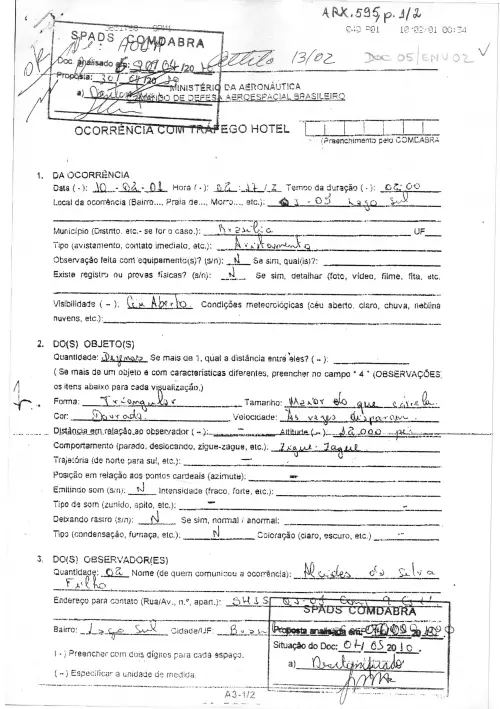 ARX.595, p. 1/2
10-02-01 00:34
SPADS COMDABRA
13/02 Doc 05/ENV 02
Doc analisado em:
Proposta:
a)
MINISTÉRIO DA AERONÁUTICA
COMANDO DE DEFESA AEROESPACIAL BRASILEIRO
OCORRÊNCIA COM TRÁFEGO HOTEL
(Preenchimento pelo COMDABRA
1. DA OCORRÊNCIA
Data (-): 10 - 02 - 01 Hora (-): 02 : 17 / Z Tempo da duração (-): 02:00
Local da ocorrência (Bairro..., Praia de..., Morro..., etc.): - 05 Lago Sul
Município (Distrito, etc.- se for o caso.): Brasília UF
Tipo (avistamento, contato imediato, etc.): Avistamento
Observação feita com equipamento(s)? (s/n): N Se sim, qual(is)?:
Existe registro ou provas físicas? (s/n): N Se sim, detalhar (foto, vídeo, filme, fita, etc.
Visibilidade (~): Céu Aberto. Condições meteorológicas (céu aberto, claro, chuva, neblina
nuvens, etc.):
2. DO(S) OBJETO(S)
Quantidade: Dezenas Se mais de 1, qual a distância entre eles? (~):
(Se mais de um objeto e com características diferentes, preencher no campo "4" (OBSERVAÇÕES,
os itens abaixo para cada visualização.)
Forma: Triangular Tamanho: Menor do que estrela
Cor: Dourada Velocidade: Às vezes disparam
Distância em relação ao observador (~): - Altitude (~): 12.000 pés
Comportamento (parado, deslocando, zigue-zague, etc.): Zigue-Zague
Trajetória (de norte para sul, etc.):
Posição em relação aos pontos cardeais (azimute): -
Emitindo som (s/n): N Intensidade (fraco, forte, etc.):
Tipo de som (zunido, apito, etc.): -
Deixando rastro (s/n): N Se sim, normal / anormal:
Tipo (condensação, fumaça, etc.): N Coloração (claro, escuro, etc.) -
3. DO(S) OBSERVADOR(ES)
Quantidade: 02 Nome (de quem comunicou a ocorrência): Alcides da Silva
Filho
Endereço para contato (Rua/Av., n.º, apart.): SHIS
Bairro: Lago Sul Cidade/UF:
(-) Preencher com dois dígitos para cada espaço.
(~) Especificar a unidade de medida.
SPADS COMDABRA
Proposta analisada em:
Situação do Doc: 04/05/2010.
a) Desclassificado
A3-1/2